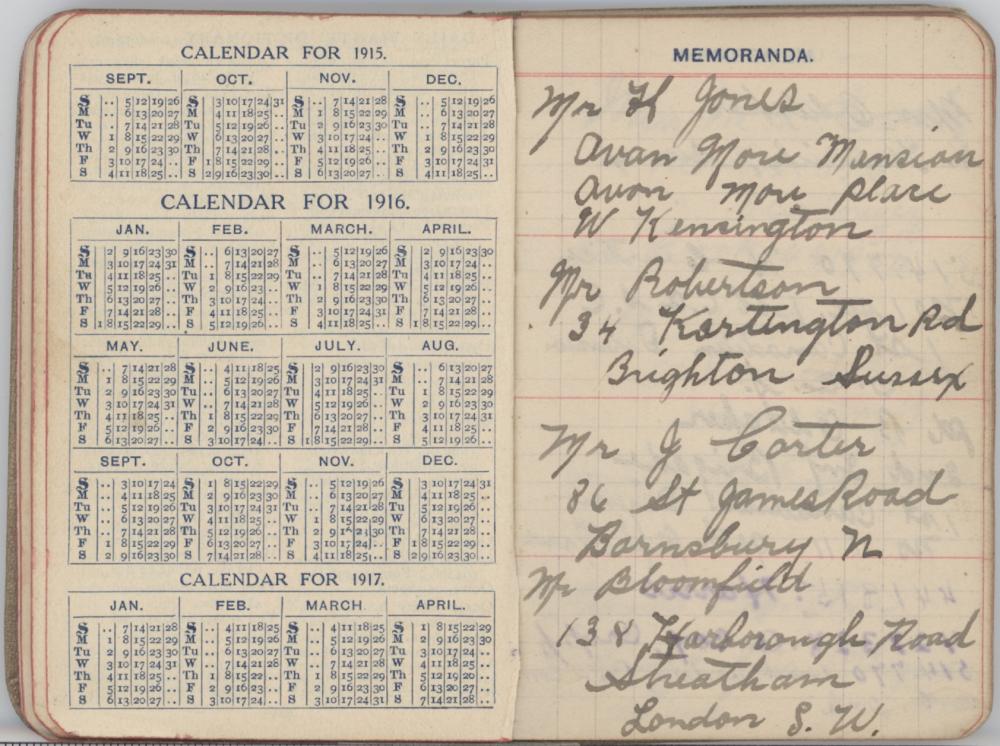 CALENDAR FOR 1915.
SEPT. OCT. NOV. DEC.
S .. 5 12 19 26 S 3 10 17 24 31 S .. 7 14 21 28 S .. 5 12 19 26
M .. 6 13 20 27 M 4 11 18 25 .. M 1 8 15 22 29 M .. 6 13 20 27
Tu .. 7 14 21 28 Tu 5 12 19 26 .. Tu 2 9 16 23 30 Tu .. 7 14 21 28
W 1 8 15 22 29 W 6 13 20 27 .. W 3 10 17 24 .. W 1 8 15 22 29
Th 2 9 16 23 30 Th 7 14 21 28 .. Th 4 11 18 25 .. Th 2 9 16 23 30
F 3 10 17 24 .. F 1 8 15 22 29 .. F 5 12 19 26 .. F 3 10 17 24 31
S 4 11 18 25 .. S 2 9 16 23 30 .. S 6 13 20 27 .. S 4 11 18 25 ..
CALENDAR FOR 1916.
JAN. FEB. MARCH. APRIL.
S 2 9 16 23 30 S .. 6 13 20 27 S .. 5 12 19 26 S 2 9 16 23 30
M 3 10 17 24 31 M .. 7 14 21 28 M .. 6 13 20 27 M 3 10 17 24 ..
Tu 4 11 18 25 .. Tu 1 8 15 22 29 Tu .. 7 14 21 28 Tu 4 11 18 25 ..
W 5 12 19 26 .. W 2 9 16 23 .. W 1 8 15 22 29 W 5 12 19 26 ..
Th 6 13 20 27 .. Th 3 10 17 24 .. Th 2 9 16 23 30 Th 6 13 20 27 ..
F 7 14 21 28 .. F 4 11 18 25 .. F 3 10 17 24 31 F 7 14 21 28 ..
S 1 8 15 22 29 .. S 5 12 19 26 .. S 4 11 18 25 .. S 1 8 15 22 29 ..
MAY. JUNE. JULY. AUG.
S .. 7 14 21 28 S .. 4 11 18 25 S 2 9 16 23 30 S .. 6 13 20 27
M 1 8 15 22 29 M .. 5 12 19 26 M 3 10 17 24 31 M .. 7 14 21 28
Tu 2 9 16 23 30 Tu .. 6 13 20 27 Tu 4 11 18 25 .. Tu 1 8 15 22 29
W 3 10 17 24 31 W .. 7 14 21 28 W 5 12 19 26 .. W 2 9 16 23 30
Th 4 11 18 25 .. Th 1 8 15 22 29 Th 6 13 20 27 .. Th 3 10 17 24 31
F 5 12 19 26 .. F 2 9 16 23 30 F 7 14 21 28 .. F 4 11 18 25 ..
S 6 13 20 27 .. S 3 10 17 24 .. S 1 8 15 22 29 .. S 5 12 19 26 ..
SEPT. OCT. NOV. DEC.
S .. 3 10 17 24 S 1 8 15 22 29 S .. 5 12 19 26 S 3 10 17 24 31
M .. 4 11 18 25 M 2 9 16 23 30 M .. 6 13 20 27 M 4 11 18 25 ..
Tu .. 5 12 19 26 Tu 3 10 17 24 31 Tu .. 7 14 21 28 Tu 5 12 19 26 ..
W .. 6 13 20 27 W 4 11 18 25 .. W 1 8 15 22 29 W 6 13 20 27 ..
Th .. 7 14 21 28 Th 5 12 19 26 .. Th 2 9 16 23 30 Th 7 14 21 28 ..
F 1 8 15 22 29 F 6 13 20 27 .. F 3 10 17 24 .. F 1 8 15 22 29 ..
S 2 9 16 23 30 S 7 14 21 28 .. S 4 11 18 25 .. S 2 9 16 23 30 ..
CALENDAR FOR 1917.
JAN. FEB. MARCH APRIL.
S .. 7 14 21 28 S .. 4 11 18 25 S .. 4 11 18 25 S 1 8 15 22 29
M 1 8 15 22 29 M .. 5 12 19 26 M .. 5 12 19 26 M 2 9 16 23 30
Tu 2 9 16 23 30 Tu .. 6 13 20 27 Tu .. 6 13 20 27 Tu 3 10 17 24 ..
W 3 10 17 24 31 W .. 7 14 21 28 W .. 7 14 21 28 W 4 11 18 25 ..
Th 4 11 18 25 .. Th 1 8 15 22 .. Th 1 8 15 22 29 Th 5 12 19 26 ..
F 5 12 19 26 .. F 2 9 16 23 .. F 2 9 16 23 30 F 6 13 20 27 ..
S 6 13 20 27 .. S 3 10 17 24 .. S 3 10 17 24 31 S 7 14 21 28 ..
MEMORANDA.
Mr H Jones
Avan More Mansion
Avon More place
W Kensington
Mr Robertson
34 Kortington Rd
Brighton Sussex
Mr J Corter
86 St James Road
Barnsbury N
Mr Bloomfield
138 Harborough Road
Streatham
London S. W.